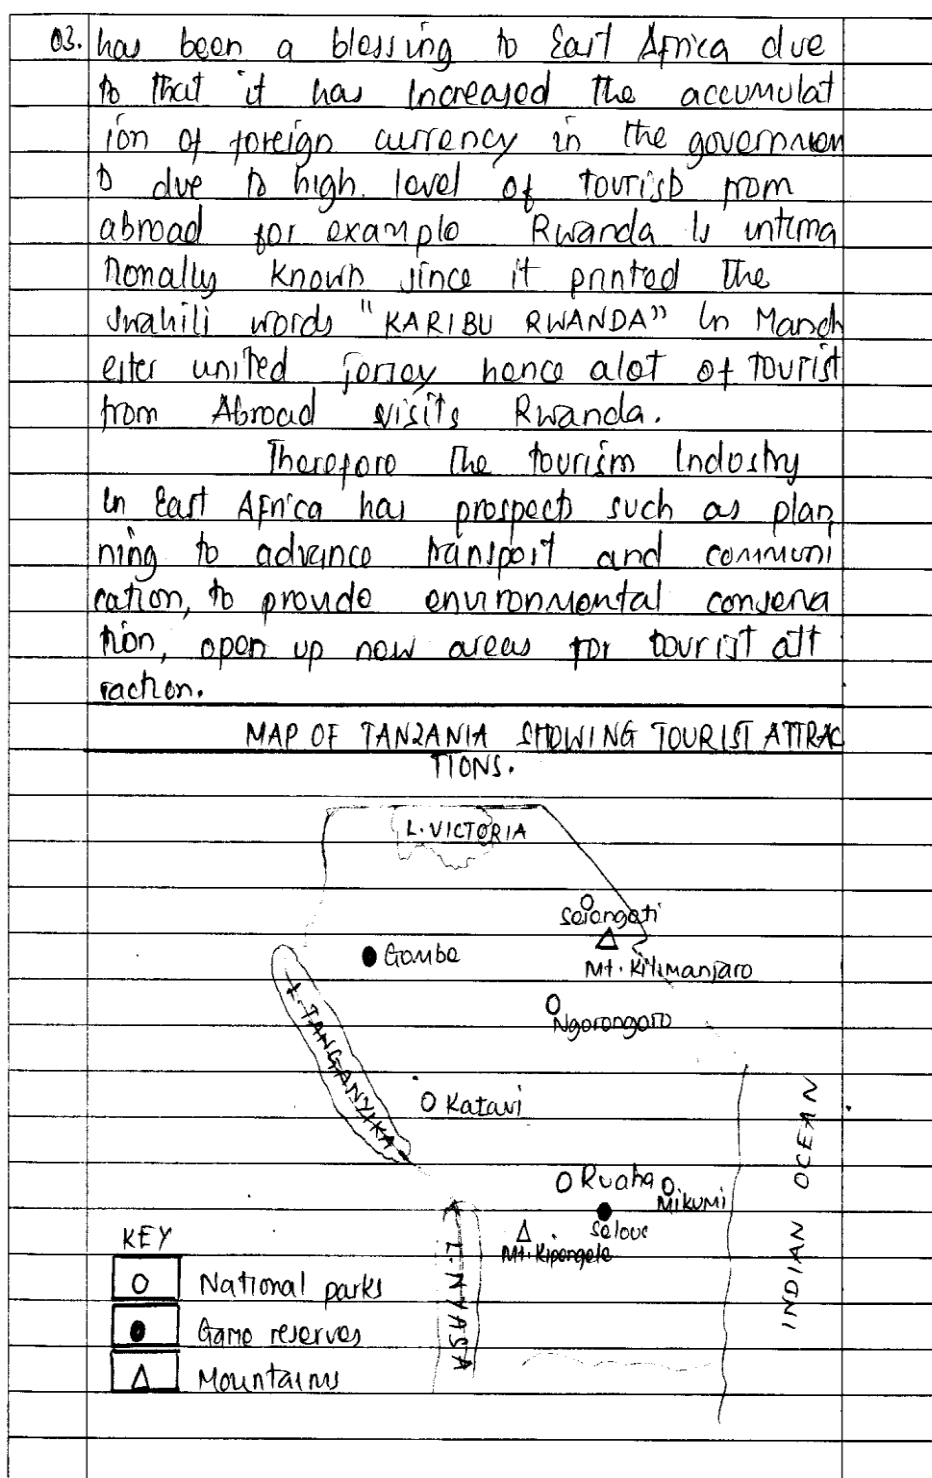 03. has been a blessing to East Africa due
to that it has increased the accumulat
ion of foreign currency in the governmen
t due to high level of tourists from
abroad for example Rwanda is interna
tionally known since it printed the
Swahili words "KARIBU RWANDA" in Manch
ester united jersey hence alot of tourist
from Abroad visits Rwanda.
Therefore the tourism Industry
in East Africa has prospects such as plan
ning to advance transport and communi
cation, to provide environmental conserva
tion, open up new areas for tourist att
raction.
MAP OF TANZANIA SHOWING TOURIST ATTRAC
TIONS.
L. VICTORIA
Serengeti
Gombe
Mt. Kilimanjaro
Ngorongoro
L. TANGANYIKA
Katavi
INDIAN OCEAN
Ruaha
Mikumi
Selous
Mt. Kipengele
L. NYASA
KEY
National parks
Game reserves
Mountains